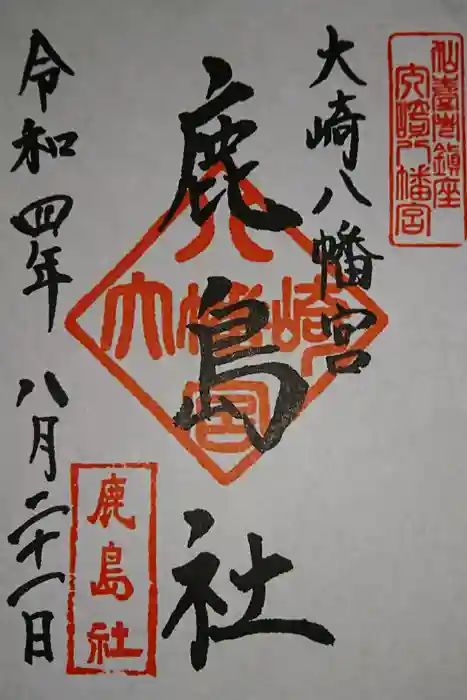 仙臺市鎮座
大崎八幡宮
大崎八幡宮
鹿島社
大崎八幡宮
鹿島社
令和四年八月二十一日